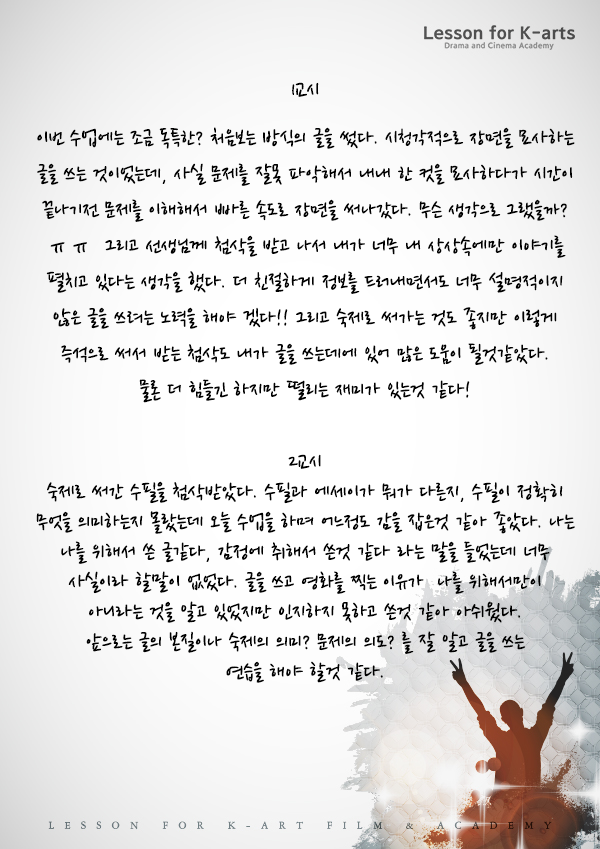 Lesson for K-arts
Drama and Cinema Academy
1교시
이번 수업에는 조금 독특한? 처음보는 방식의 글을 썼다. 시청각적으로 장면을 묘사하는
글을 쓰는 것이었는데, 사실 문제를 잘못 파악해서 내내 한 컷을 묘사하다가 시간이
끝나기전 문제를 이해해서 빠른 속도로 장면을 써나갔다. 무슨 생각으로 그랬을까?
ㅠ ㅠ 그리고 선생님께 첨삭을 받고 나서 내가 너무 내 상상속에만 이야기를
펼치고 있다는 생각을 했다. 더 친절하게 정보를 드러내면서도 너무 설명적이지
않은 글을 쓰려는 노력을 해야 겠다!! 그리고 숙제로 써가는 것도 좋지만 이렇게
즉석으로 써서 받는 첨삭도 내가 글을 쓰는데에 있어 많은 도움이 될것같았다.
물론 더 힘들긴 하지만 떨리는 재미가 있는것 같다!
2교시
숙제로 써간 수필을 첨삭받았다. 수필과 에세이가 뭐가 다른지, 수필이 정확히
무엇을 의미하는지 몰랐는데 오늘 수업을 하며 어느정도 감을 잡은것 같아 좋았다. 나는
나를 위해서 쓴 글같다, 감정에 취해서 쓴것 같다 라는 말을 들었는데 너무
사실이라 할말이 없었다. 글을 쓰고 영화를 찍는 이유가 나를 위해서만이
아니라는 것을 알고 있었지만 인지하지 못하고 쓴것 같아 아쉬웠다.
앞으로는 글의 본질이나 숙제의 의미? 문제의 의도? 를 잘 알고 글을 쓰는
연습을 해야 할것 같다.
LESSON FOR K-ART FILM & ACADEMY